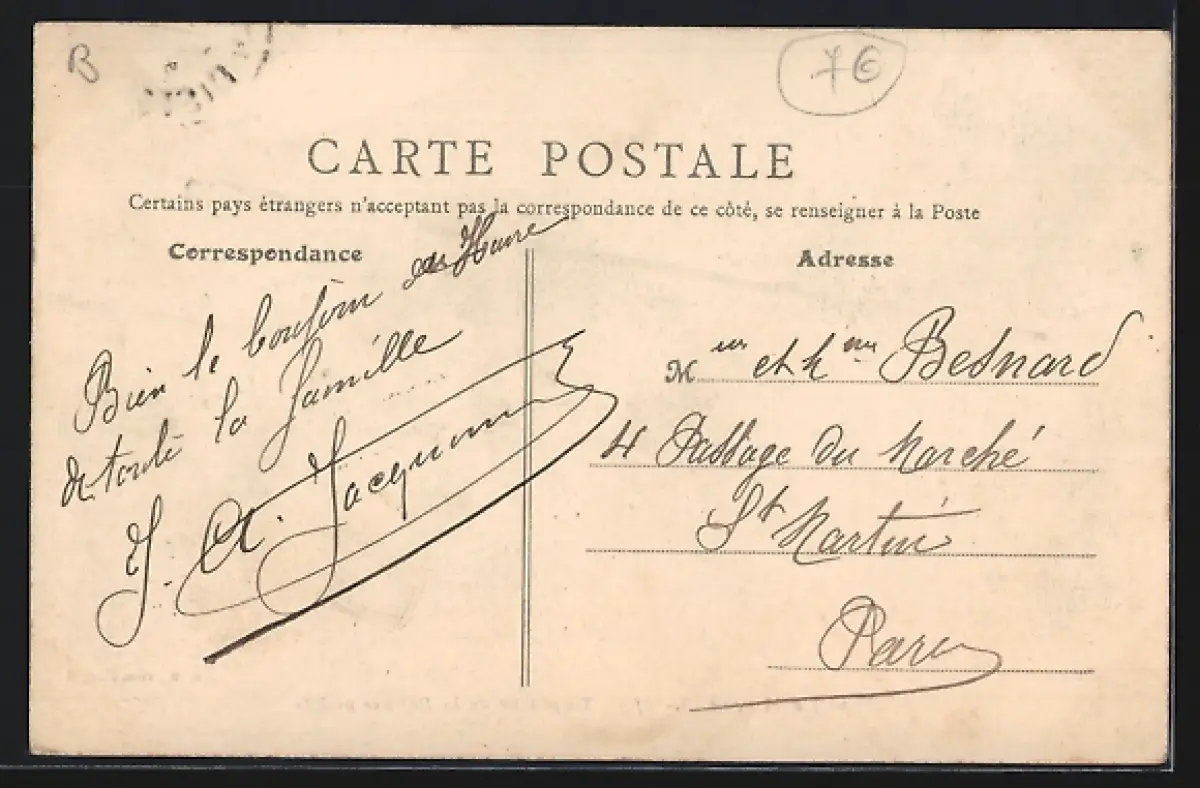 B
76
CARTE POSTALE
Certains pays étrangers n'acceptant pas la correspondance de ce côté, se renseigner à la Poste
Correspondance
Bien le bonjour du Havre
de toute la famille
J. A. Jacquemin
Adresse
Meur et Mme Besnard
4 Passage du Marché
St Martin
Paris